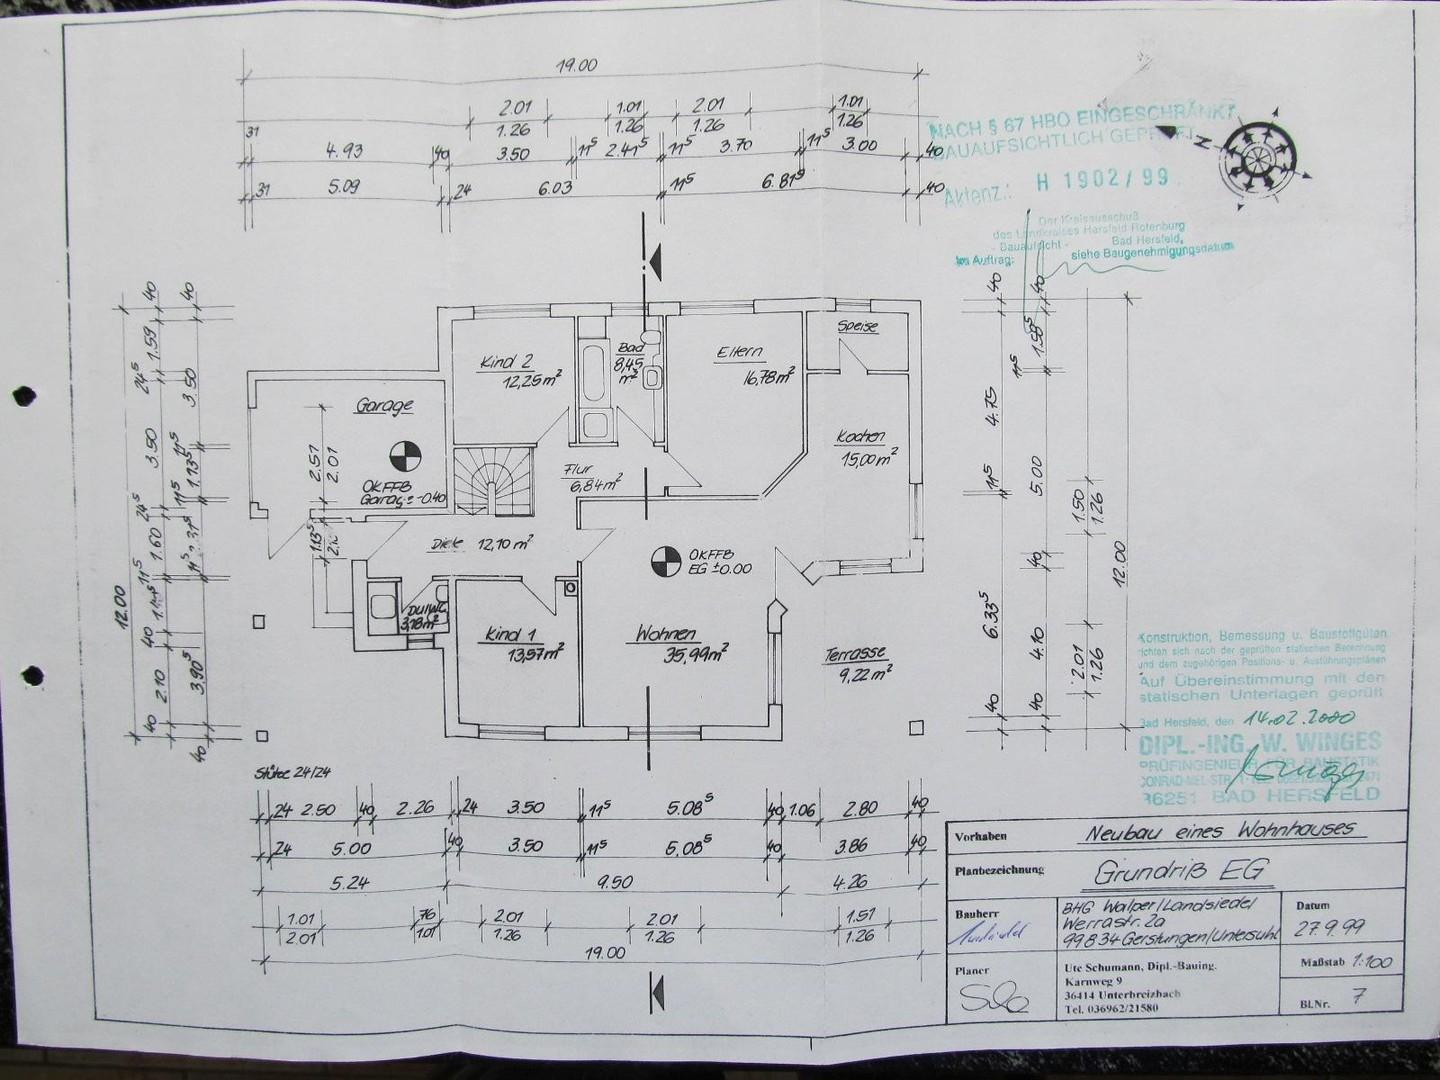 19.00
2.01 1.01 2.01 1.01
1.26 1.26 1.26 1.26
31 4.93 40 3.50 11⁵ 2.41⁵ 11⁵ 3.70 11⁵ 3.00 40
31 5.09 24 6.03 11⁵ 6.81⁵ 40
NACH § 67 HBO EINGESCHRÄNKT
BAUAUFSICHTLICH GEPRÜFT
Aktenz.: H 1902/99
Der Kreisausschuß
des Landkreises Hersfeld Rotenburg
- Bauaufsicht - Bad Hersfeld,
Im Auftrag: siehe Baugenehmigungsdatum
N
12.00
40 1.59 24⁵ 3.50 24⁵ 1.60 11⁵ 40 2.10 40
40 3.50 11⁵ 1.13⁵ 11⁵ 11⁵ 3.90⁵ 40
Garage
2.51
2.01
OKFFB
Garage -0.40
1.13⁵
Kind 2
12,25 m²
Bad
8,45
m²
Eltern
16,78 m²
Speise
Kochen
15,00 m²
Flur
6,84 m²
Diele 12,10 m²
OKFFB
EG ±0.00
DU/WC
3,18 m²
Kind 1
13,57 m²
Wohnen
35,99 m²
Terrasse
9,22 m²
40 4.75 11⁵ 6.33⁵ 40
40 1.58⁵ 11⁵ 5.00 40 4.10 40
1.50
1.26
2.01
1.26
12.00
Stütze 24/24
24 2.50 40 2.26 24 3.50 11⁵ 5.08⁵ 40 1.06 2.80 40
24 5.00 40 3.50 11⁵ 5.08⁵ 40 3.86 40
5.24 9.50 4.26
1.01 76 2.01 2.01 1.51
2.01 1.01 1.26 1.26 1.26
19.00
Konstruktion, Bemessung u. Baustoffgüten
richten sich nach der geprüften statischen Berechnung
und dem zugehörigen Positions- u. Ausführungsplänen
Auf Übereinstimmung mit den
statischen Unterlagen geprüft
Bad Hersfeld, den 14.02.2000
DIPL.-ING. W. WINGES
PRÜFINGENIEUR FÜR BAUSTATIK
36251 BAD HERSFELD
Vorhaben Neubau eines Wohnhauses
Planbezeichnung Grundriß EG
Bauherr
BHG Walper/Landsiedel
Werrastr. 2a
99834 Gerstungen/Untersuhl
Datum
27.9.99
Planer
Ute Schumann, Dipl.-Bauing.
Karnweg 9
36414 Unterbreizbach
Tel. 036962/21580
Maßstab 1:100
Bl.Nr. 7